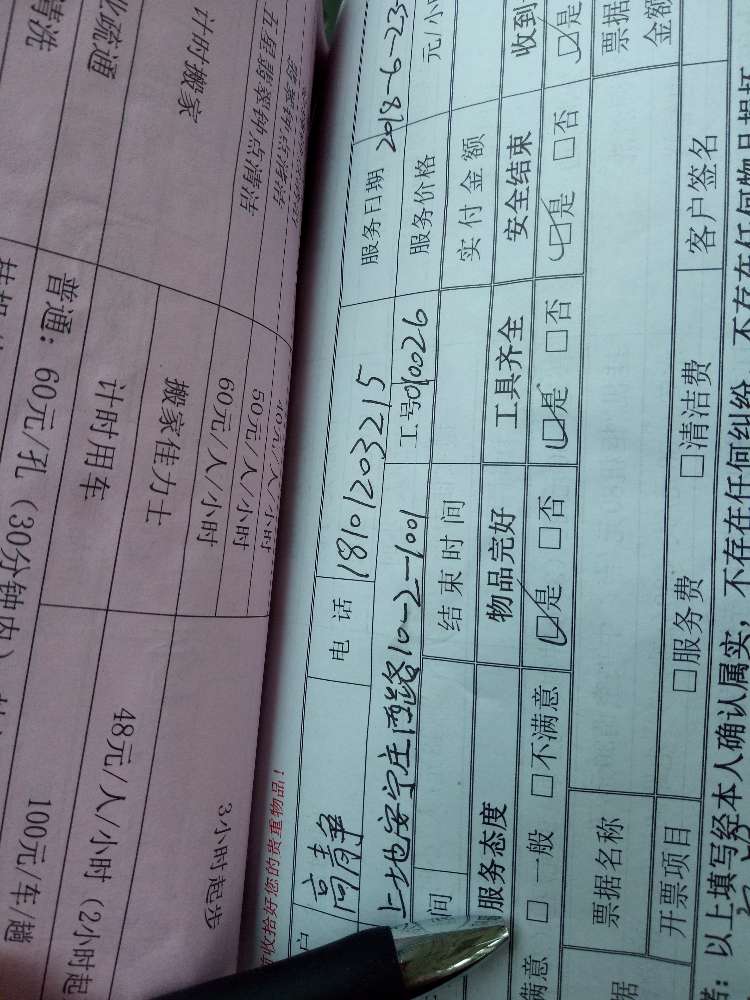 清洗
疏通
计时搬家
五星腾翠钟点清洁
普通：60元/孔（30分钟内）
计时用车
搬家佳力士
60元/人/小时
50元/人/小时
100元/车/趟
48元/人/小时（2小时起
3小时起步
收拾好您的贵重物品！
户 高静 电话 18101203215 服务日期 2018-6-23
上地安宁庄西路10-2-1001 工号010026 服务价格 元/小
间 结束时间 实付金额
服务态度 物品完好 工具齐全 安全结束 收到
满意 □一般 □不满意 □是 □否 □是 □否 □是 □否 □是
票据名称 票据
金额
据 开票项目 □服务费 □清洁费 客户签名
：以上填写经本人确认属实，不存在任何纠纷，不存在任何物品损坏